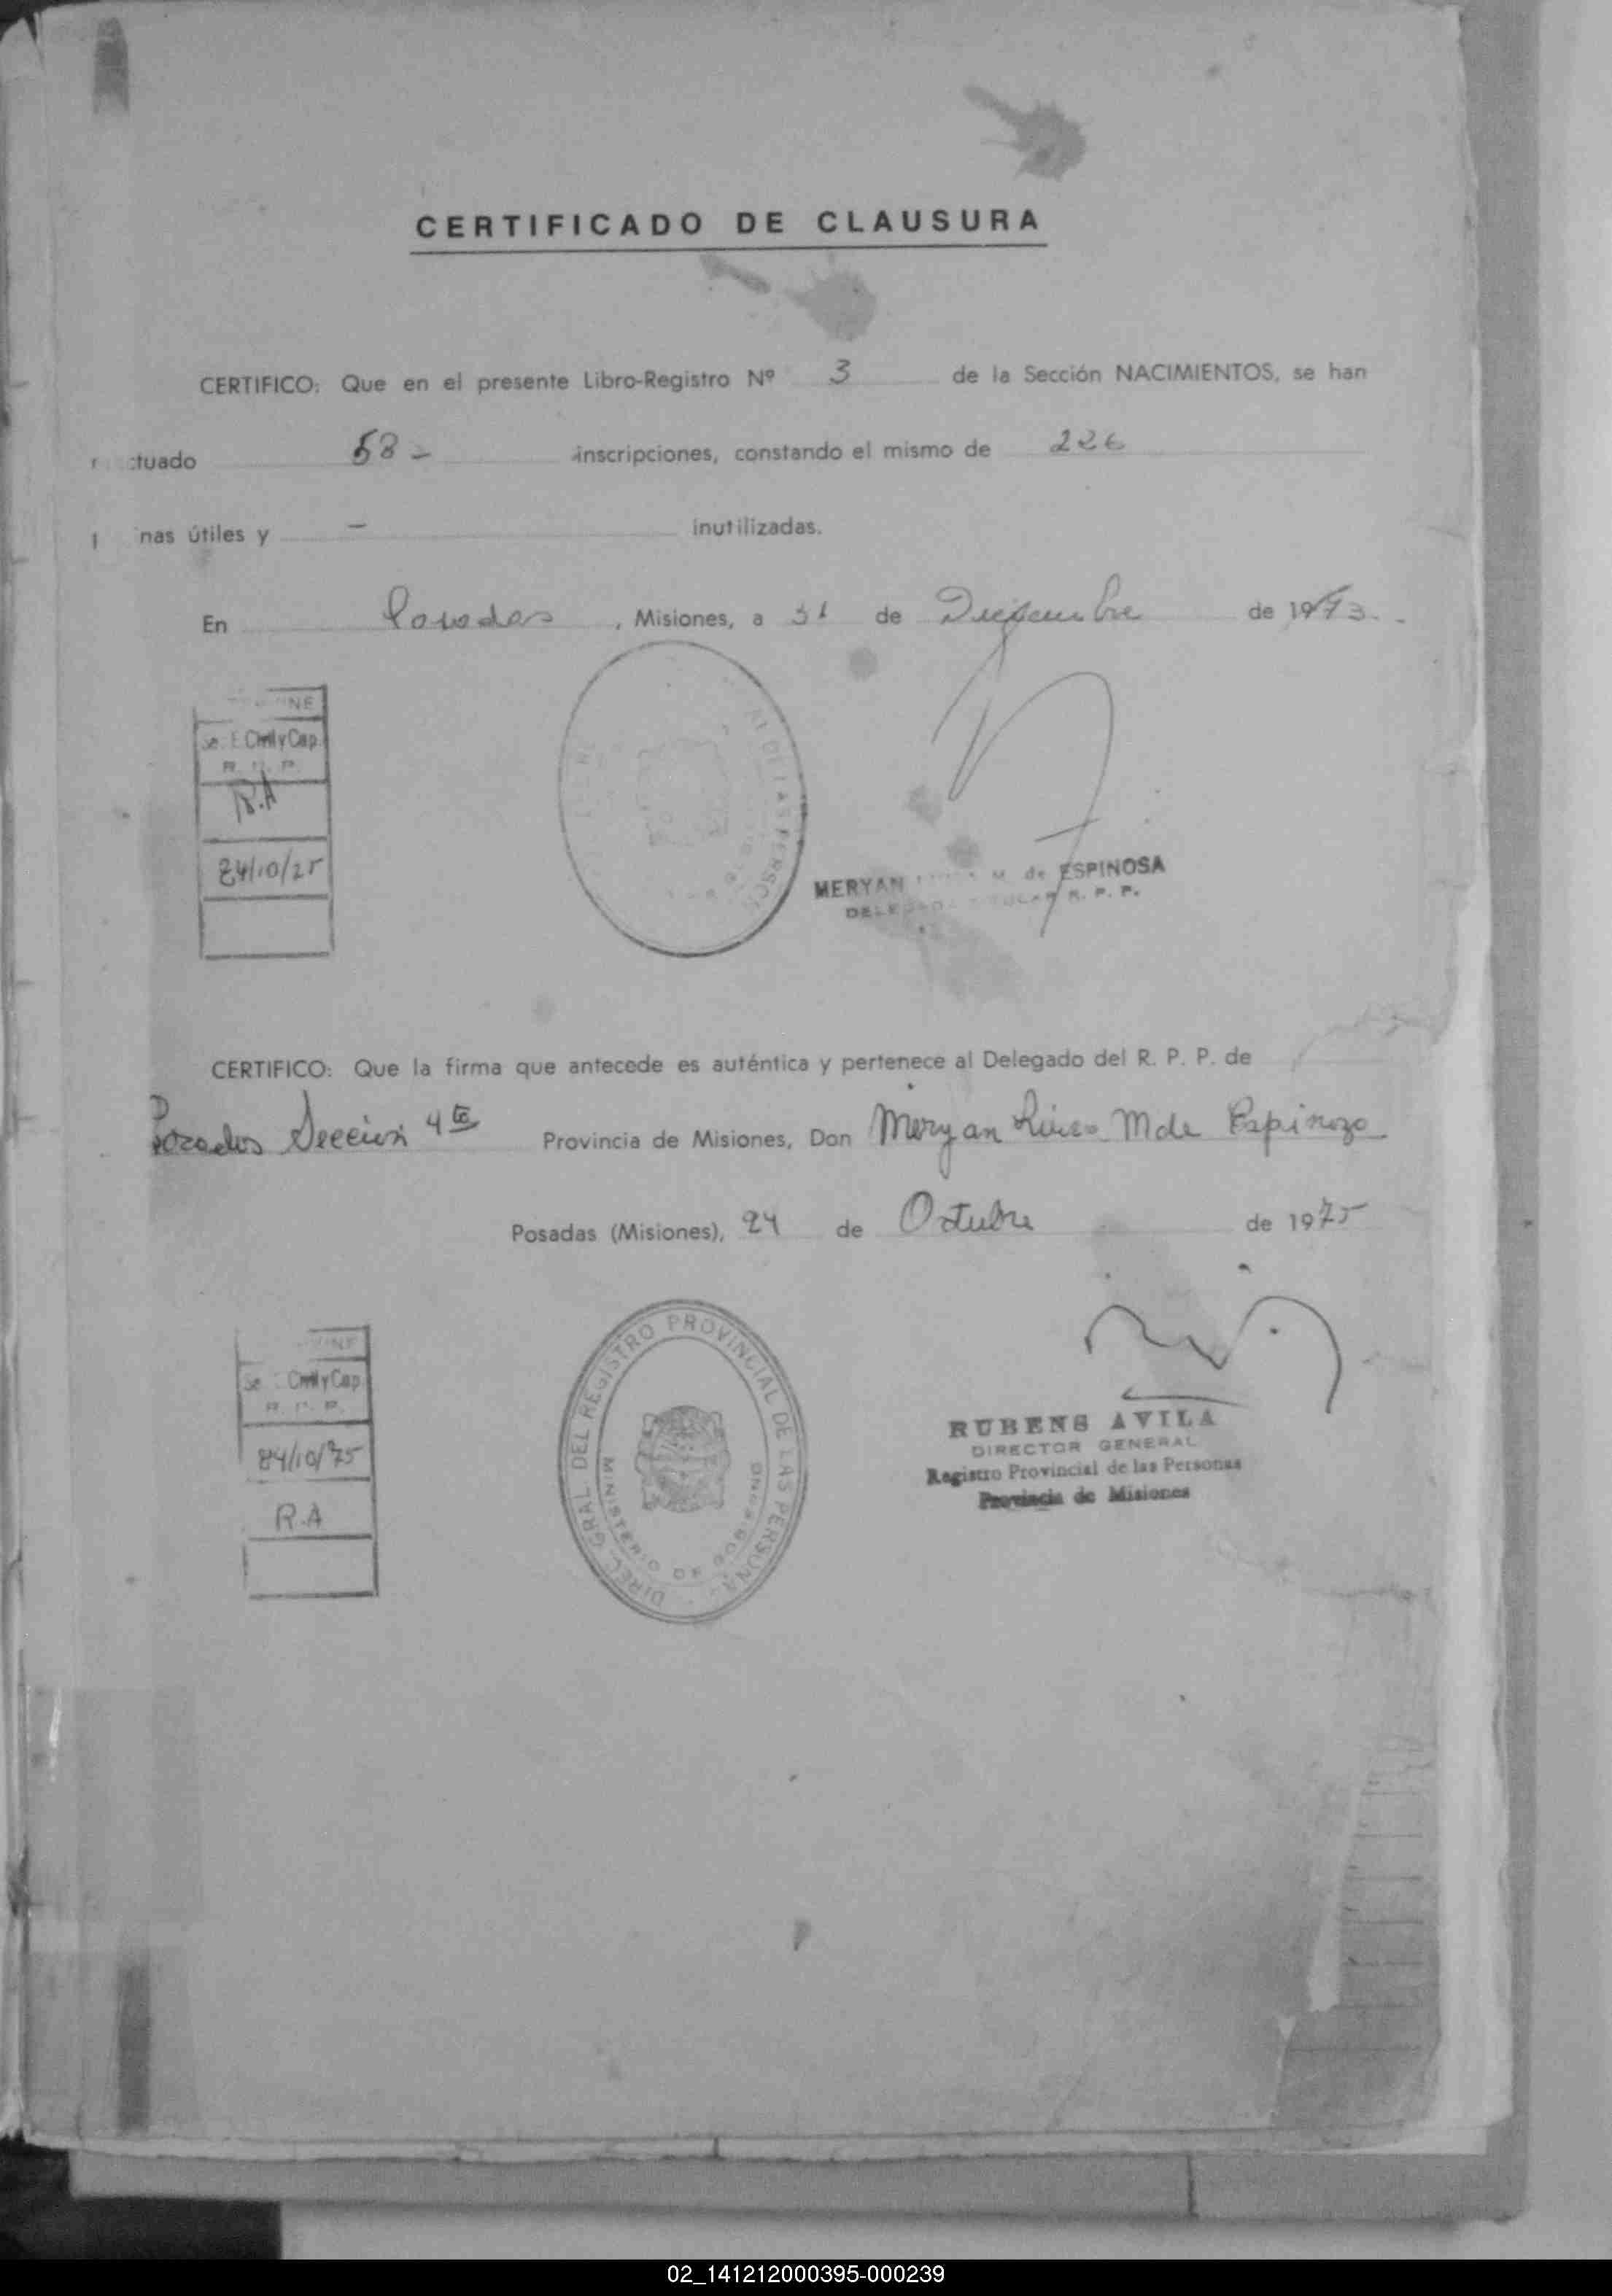 CERTIFICADO DE CLAUSURA
CERTIFICO: Que en el presente Libro-Registro Nº 3 de la Sección NACIMIENTOS, se han
ctuado 58 - inscripciones, constando el mismo de 226
nas útiles y - inutilizadas.
En Posadas, Misiones, a 31 de Diciembre de 1973.
Civil y Cap.
R.A
24/10/75
MERYAN M. de ESPINOSA
R. P. P.
CERTIFICO: Que la firma que antecede es auténtica y pertenece al Delegado del R. P. P. de
Posadas Sección 4ta Provincia de Misiones, Don Meryan M de Espinoza
Posadas (Misiones), 24 de Octubre de 1975
Civil y Cap.
R. P.
24/10/75
R.A
DIREC. GRAL. DEL REGISTRO PROVINCIAL DE LAS PERSONAS
MINISTERIO DE GOBIERNO
RUBENS AVILA
DIRECTOR GENERAL
Registro Provincial de las Personas
Provincia de Misiones
02_141212000395-000239